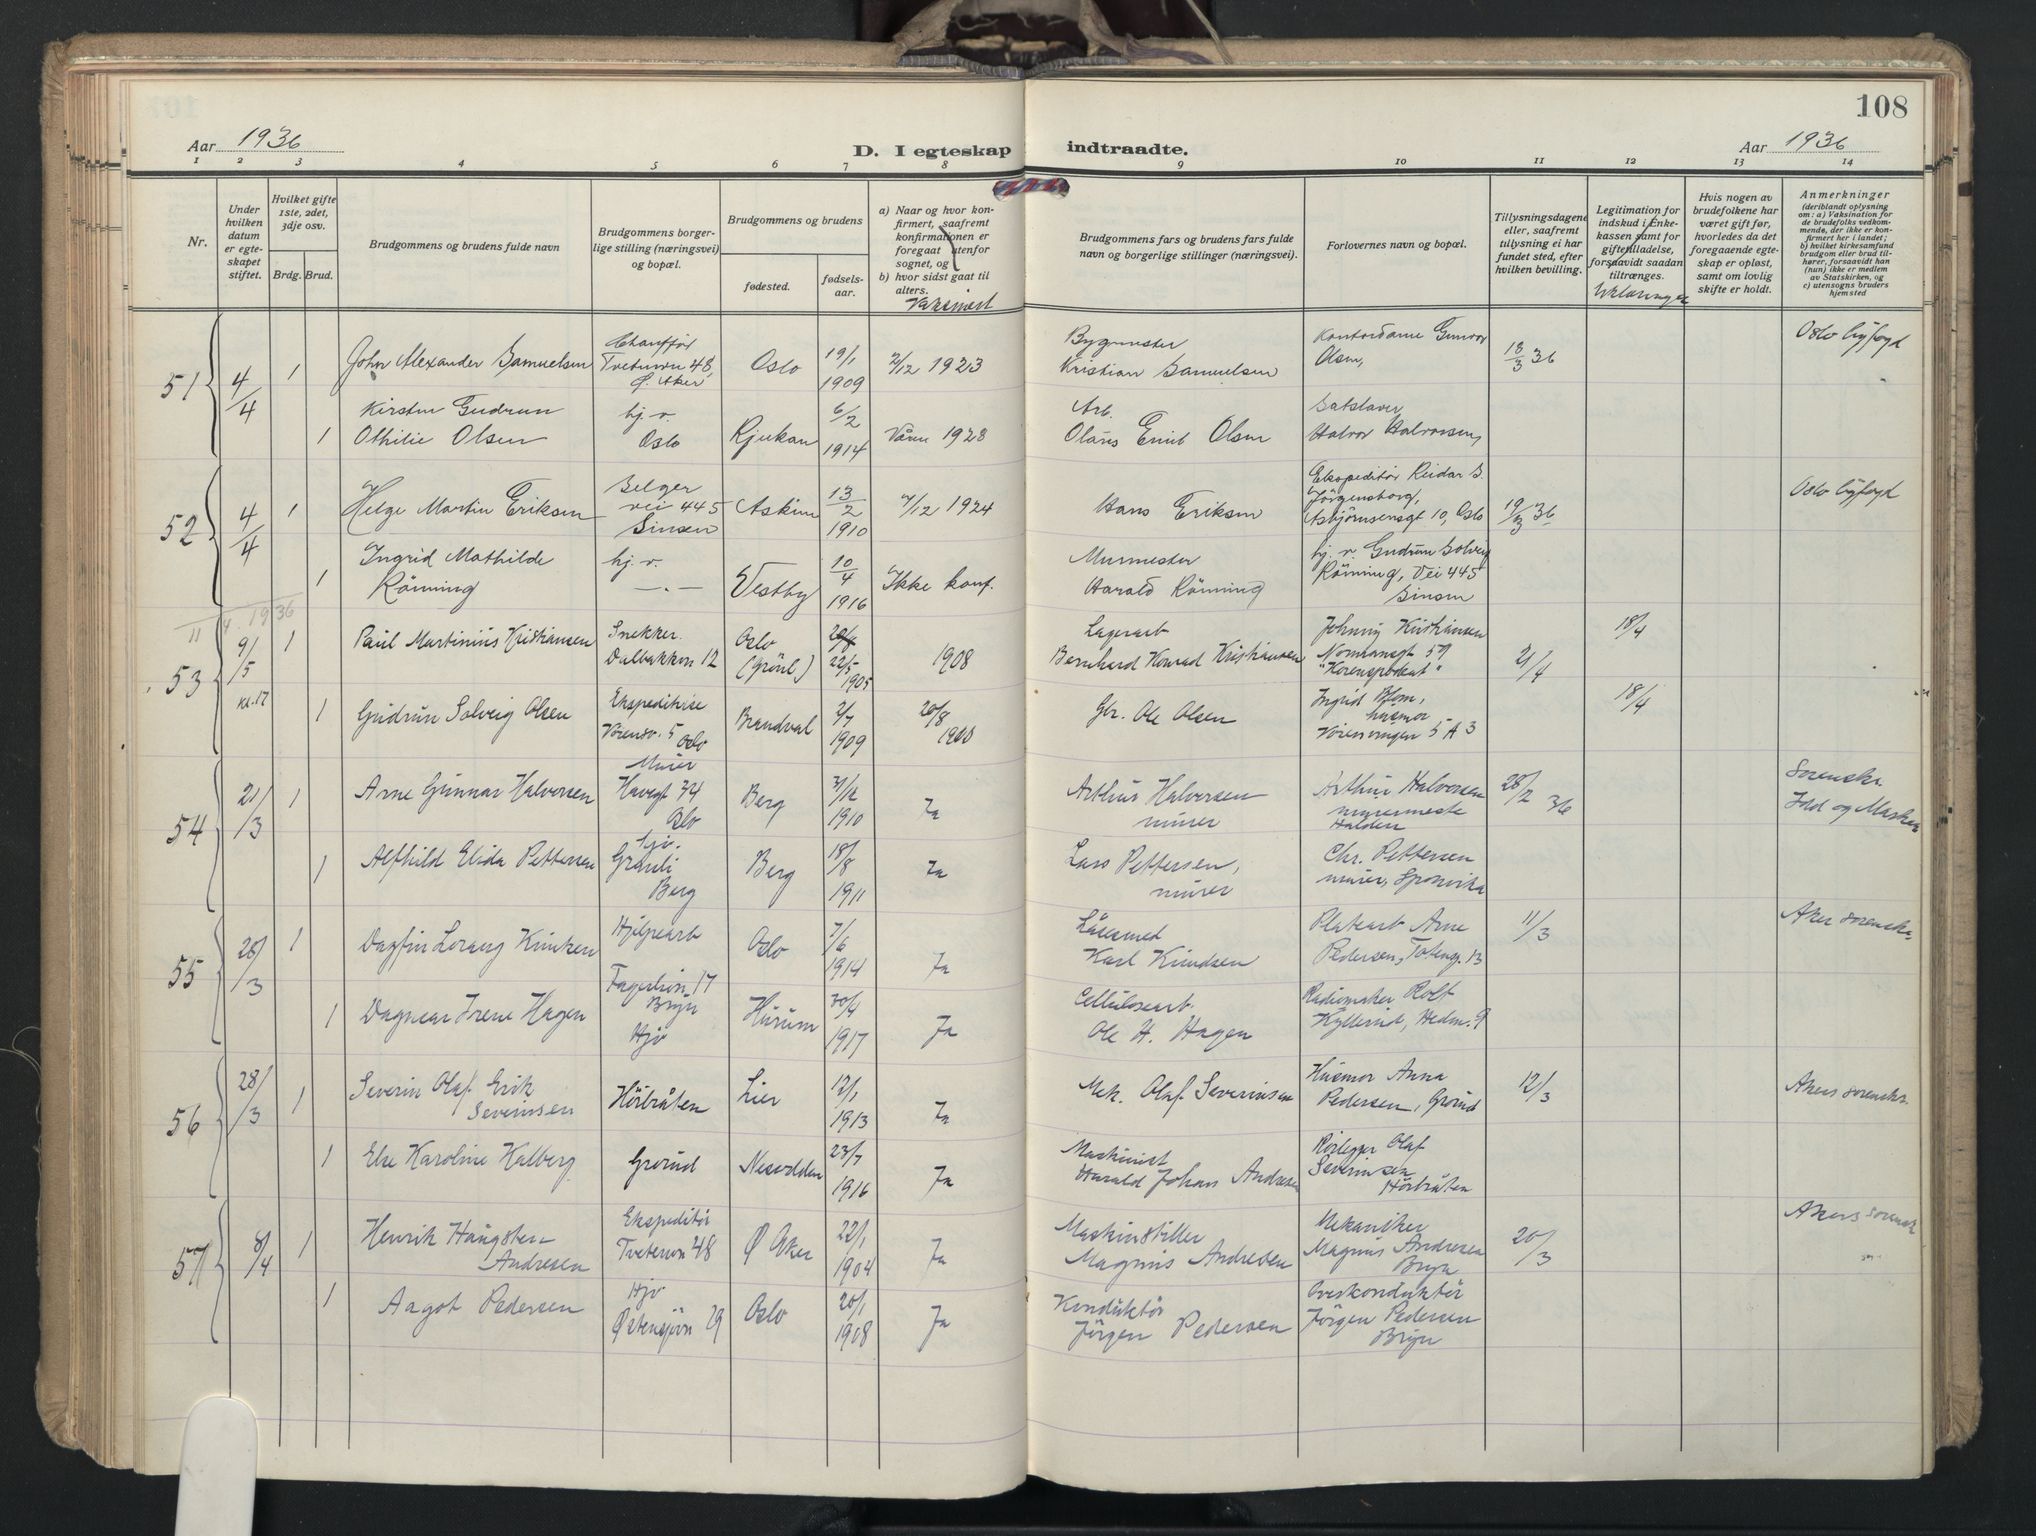 108
Aar 1936
D. I egteskap indtraadte.
Aar 1936
1 2 3 4 5 6 7 8 9 10 11 12 13 14
Nr.
Under hvilken datum er egteskapet stiftet.
Hvilket gifte 1ste, 2det, 3dje osv.
Brdg. Brud.
Brudgommens og brudens fulde navn
Brudgommens borgerlige stilling (næringsvei) og bopæl.
Brudgommens og brudens
fødested. fødselsaar.
a) Naar og hvor konfirmert, saafremt konfirmationen er foregaat utenfor sognet, og
b) hvor sidst gaat til alters.
Vaksinert
Brudgommens fars og brudens fars fulde navn og borgerlige stillinger (næringsvei).
Forlovernes navn og bopæl.
Tillysningsdagene eller, saafremt tillysning ei har fundet sted, efter hvilken bevilling.
Legitimation for indskud i Enkekassen samt for giftetilladelse, forsaavidt saadan tiltrænges.
Erklæringer
Hvis nogen av brudefolkene har været gift før, hvorledes da det foregaaende egteskap er opløst, samt om lovlig skifte er holdt.
Anmerkninger
(deriblandt oplysning om: a) Vaksination for de brudefolks vedkommende, der ikke er konfirmert her i landet; b) hvilket kirkesamfund brudgom eller brud tilhører, forsaavidt han (hun) ikke er medlem av Statskirken, og c) utensogns bruders hjemsted
51 4/4 1 John Alexander Samuelsen Chauffør Tvetenvn 48, Ø. Aker Oslo 19/1 1909 2/12 1923 Bygmester Kristian Samuelsen Kontordame Gunvor Olsen, 18/3 36 Oslo byfogd
1 Kirsten Gudrun Othilie Olsen hj. v. Oslo Rjukan 6/2 1914 Våren 1928 Arb. Olaus Emil Olsen Halvor Halvorsen,
52 4/4 1 Helge Martin Eriksen Selger vei 445 Sinsen Askim 13/2 1910 7/12 1924 Hans Eriksen Ekspeditør Reidar S. Jørgensborg, Asbjørnsensgt 10, Oslo 19/3 36 Oslo byfogd
1 Ingrid Mathilde Rønning hj. v. — . — Vestby 10/4 1916 Ikke konf. Murmester Harald Rønning hj. v. Gudrun Solveig Rønning, Vei 445 Sinsen
11/4. 1936
53 9/5 kl. 17 1 Paul Martinius Kristiansen Snekker. Dalbakken 12 Oslo (Grønl) 22/5 1905 1908 Lagerarb Bernhard Konrad Kristiansen Johnny Kristiansen Normansgt 59 21/4 18/4
1 Gudrun Solveig Olsen Ekspeditrise 5 Oslo Brandval 2/7 1909 20/8 Gbr. Ole Olsen Ingrid Blom, husmor 5 A 3 18/4
54 21/3 1 Arne Gunnar Halvorsen Murer Havegt 34 Oslo Berg 7/12 1910 Ja Arthur Halvorsen murer Arthur Halvorsen murermester Halden 28/2 36 Sorenskr. Idd og Marker
1 Alfhild Elida Pettersen Hjv. Berg Berg 18/8 1911 Ja Lars Pettersen, murer Chr. Pettersen murer, Sponvika
55 28/3 1 Hjelpearb Fagerlivn 17 Bryn Oslo 7/6 1914 Ja Låsesmed Karl Knudsen Platearb Arne Pedersen, Totengt. 13 11/3 Aker sorenskr.
1 Dagmar Irene Hagen Hjv Hurum 30/4 1917 Ja Cellulosearb. Ole H. Hagen Radiomaker Rolf Hedm. 9
56 28/3 1 Severin Olaf Erik Severinsen Hörbråten Lier 12/1 1913 Ja Mek. Olaf Severinsen Husmor Anna Pedersen, Grorud 12/3 Akers sorenskr.
1 Else Karoline Kalberg Grorud Nesodden 23/7 1916 Ja Maskinist Harald Johan Andresen Rørlegger Olaf Severinsen Hörbråten
57 8/4 1 Henrik Haugsten Andresen Ekspeditör Tvetenvn 48 Ø Aker 22/1 1904 Ja Maskinstiller Magnus Andresen Mekaniker Magnus Andresen Bryn 20/3 Akers sorensk
1 Aagot Pedersen Hjv Østensjøvn 29 Oslo 20/1 1908 Ja Konduktör Jörgen Pedersen Overkonduktör Jörgen Pedersen Bryn